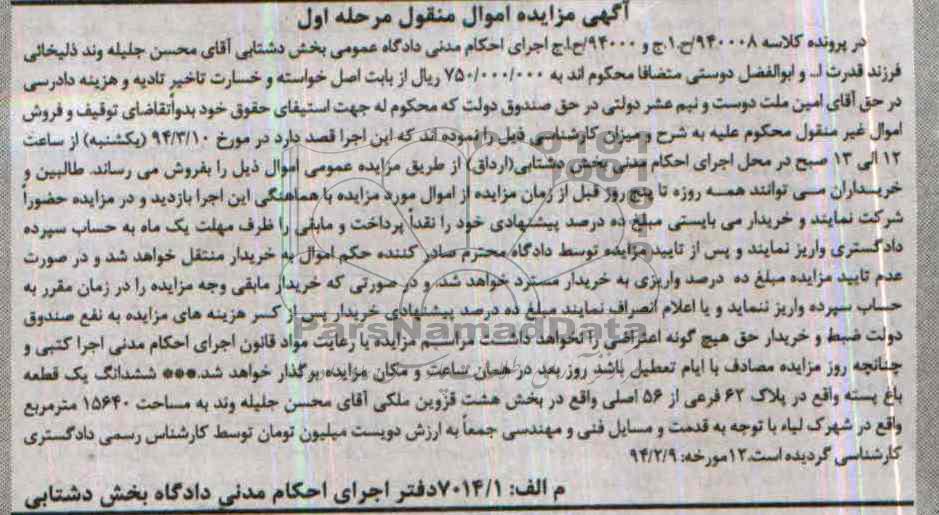 آگهی مزایده اموال منقول مرحله اول
در پرونده کلاسه ۹۴۰۰۰۸/ح.۱.ج و ۹۴۰۰۰/ح.ا.ج اجرای احکام مدنی دادگاه عمومی بخش دشتابی آقای محسن جلیله وند ذلیخائی
فرزند قدرت ا... و ابوالفضل دوستی متضافا محکوم اند به ۷۵۰/۰۰۰/۰۰۰ ریال از بابت اصل خواسته و خسارت تاخیر تادیه و هزینه دادرسی
در حق آقای امین ملت دوست و نیم عشر دولتی در حق صندوق دولت که محکوم له جهت استیفای حقوق خود بدواًتقاضای توقیف و فروش
اموال غیر منقول محکوم علیه به شرح و میزان کارشناسی ذیل را نموده اند که این اجرا قصد دارد در مورخ ۹۴/۳/۱۰ (یکشنبه) از ساعت
۱۲ الی ۱۳ صبح در محل اجرای احکام مدنی بخش دشتابی(ارداق) از طریق مزایده عمومی اموال ذیل را بفروش می رساند. طالبین و
خریـداران مـی توانند همـه روزه تا پنج روز قبل از زمان مزایده از اموال مورد مزایده با هماهنگی این اجرا بازدید و در مزایده حضوراً
شرکت نمایند و خریدار می بایستی مبلغ ده درصد پیشنهادی خود را نقداً پرداخت و مابقی را ظرف مهلت یک ماه به حساب سپرده
دادگستری واریز نمایند و پس از تایید مزایده توسط دادگاه محترم صادر کننده حکم اموال به خریدار منتقل خواهد شد و در صورت
عدم تایید مزایده مبلغ ده درصد واریزی به خریدار مسترد خواهد شد. و در صورتی که خریدار مابقی وجه مزایده را در زمان مقرر به
حساب سپرده واریز ننماید و یا اعلام انصراف نمایند مبلغ ده درصد پیشنهادی خریدار پس از کسر هزینه های مزایده به نفع صندوق
دولت ضبط و خریدار حق هیچ گونه اعتراضی را نخواهد داشت مراسم مزایده با رعایت مواد قانون اجرای احکام مدنی اجرا کتبی و
چنانچه روز مزایده مصادف با ایام تعطیل باشد روز بعد در همان ساعت و مکان مزایده برگذار خواهد شد.*** ششدانگ یک قطعه
باغ پسته واقع در پلاک ۶۲ فرعی از ۵۶ اصلی واقع در بخش هشت قزوین ملکی آقای محسن جلیله وند به مساحت ۱۵۶۴۰ مترمربع
واقع در شهرک لیاه با توجه به قدمت و مسایل فنی و مهندسی جمعاً به ارزش دویست میلیون تومان توسط کارشناس رسمی دادگستری
کارشناسی گردیده است.۱۲مورخه: ۹۴/۲/۹
م الف: ۷۰۱۴/۱دفتر اجرای احکام مدنی دادگاه بخش دشتابی
ParsNamadData